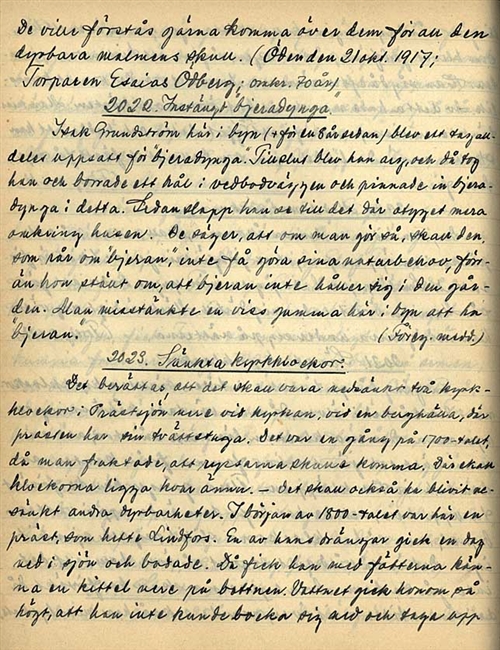 De ville förstås gärna komma över dem för all den
dyrbara malmens skull. (Öden den 21 okt. 1917;
Torparen Esaias Ödberg; omkr. 70 år)
2022. Instängt "bjeradynga"
Isak Grundström här i byn (+ för en 8 år sedan) blev ett tag all-
deles uppsatt för "bjeradynga". Tillslut blev han arg, och då tog
han och borrade ett hål i vedbodväggen och pinnade in bjera-
dynga i detta. Sedan slapp han se till det där otyget mera
omkring husen. De säger, att om man gör så, skall den,
som rår om "bjeran", inte få göra sina naturbehov, förr-
än hon stänt om, att bjeran inte håller sig i den går-
den. Man misstänkte en viss gumma här i byn att ha
"bjeran". (Föreg. medd.)
2023. Sänkta kyrkklockor.
Det berättas att det skall vara nedsänkt två kyrk-
klockor i Prästsjön nere vid kyrkan, vid en berghäll, där
prästen har sin tvättstuga. Det var en gång på 1700-talet,
då man fruktade, att ryssarna skulle komma. Där skall
klockorna ligga kvar ännu. — Det skall också ha blivit ne-
sänkt andra dyrbarheter. I början av 1800-talet var här en
präst, som hette Lindfors. En av hans drängar gick en dag
ned i sjön och badade. Då fick han med fötterna kän-
na en kittel nere på bottnen. Vattnet gick honom så
högt, att han inte kunde bocka sig ned och taga upp